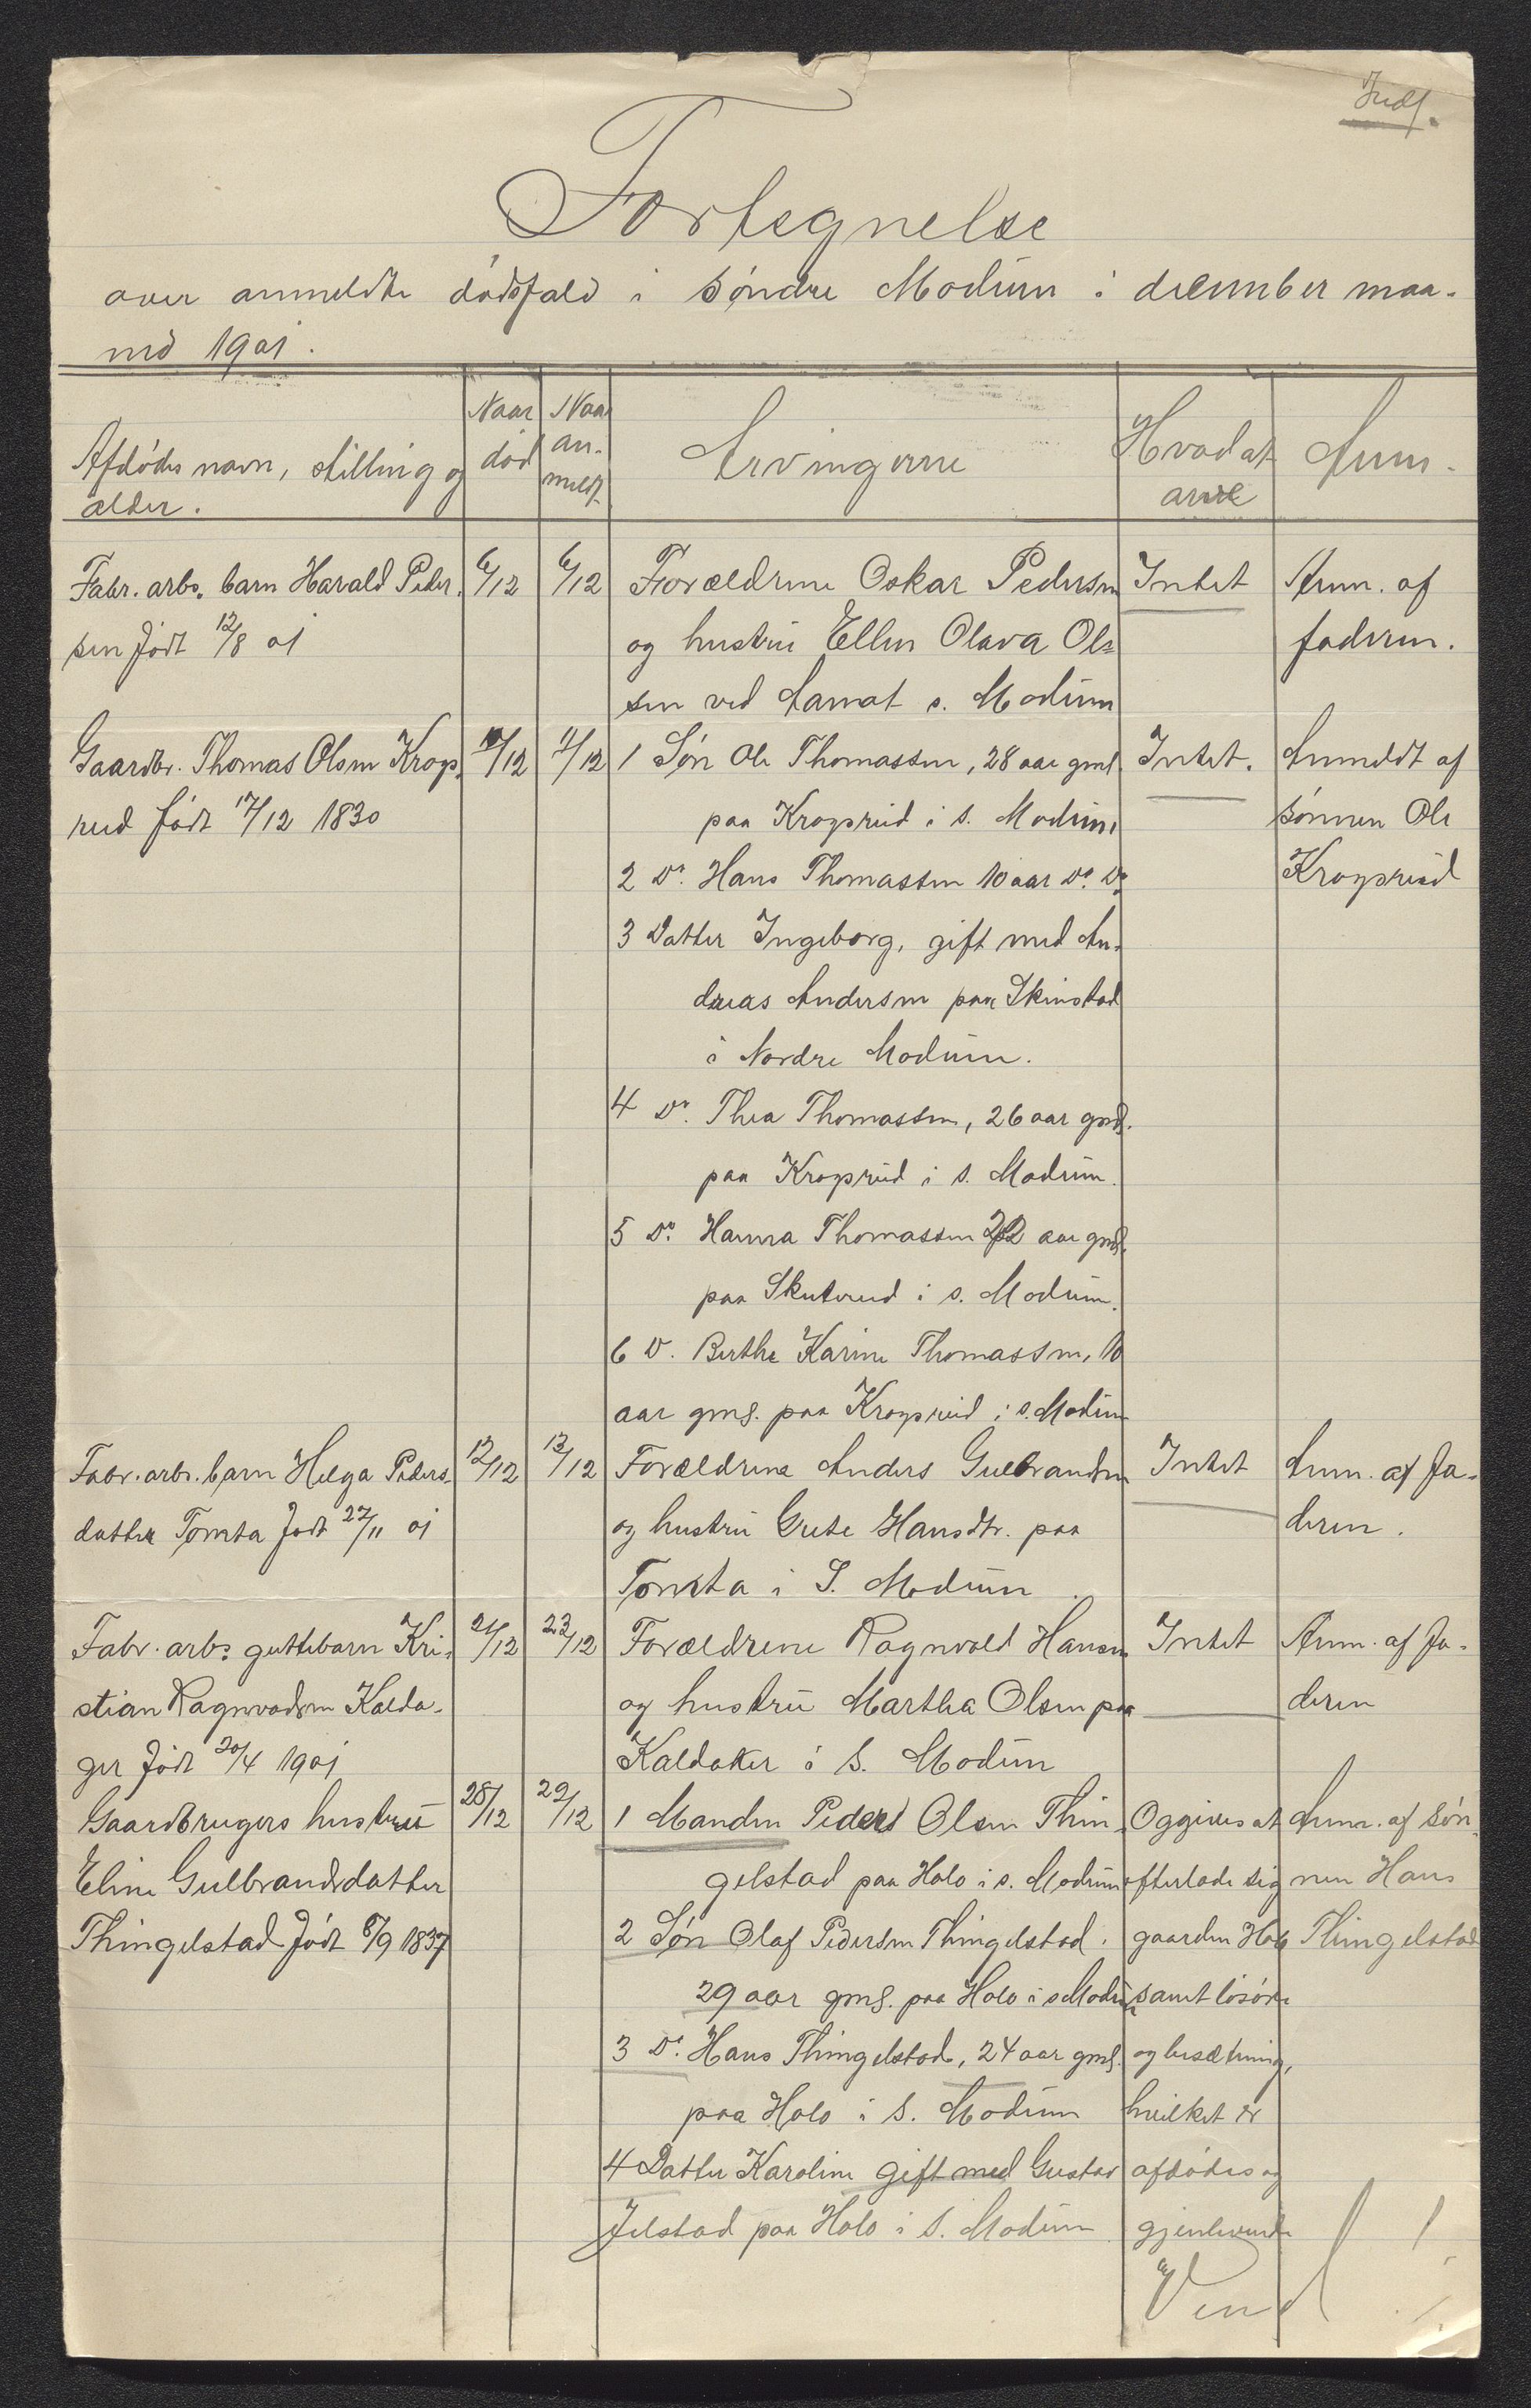 Indf.
Fortegnelse
over anmeldte dødsfald i Søndre Modum i december maa-
ned 1901.
Afdødes navn, stilling og
alder.
Naar
død
Naar
an-
meldt
Arvingerne
Hvad at
arve
Anm.
Fabr. arbs. barn Harald Peder-
sen født 12/8 01
6/12
6/12
Forældrene Oskar Pedersen
og hustru Ellen Olava Ol-
sen ved Aamot s. Modum
Intet
Anm. af
faderen.
Gaardbr. Thomas Olsen Krogs-
rud født 17/12 1830
10/12
11/12
1 Søn Ole Thomassen, 28 aar gml.
paa Krogsrud i s. Modum
2 Do. Hans Thomassen 10 aar Do. Do.
3 Datter Ingeborg, gift med An-
dreas Andersen paa Skinstad
i Nordre Modum.
4 Do. Thea Thomassen, 26 aar gml.
paa Krogsrud i s. Modum.
5 Do. Hanna Thomassen 22 aar gml.
paa Skuterud i s. Modum.
6 D. Berthe Karine Thomassen, 10
aar gml. paa Krogsrud i s. Modum
Intet.
Anmeldt af
sønnen Ole
Krogsrud
Fabr. arbs. barn Helga Peders-
datter Tomta født 27/11 01
12/12
13/12
Forældrene Anders Gulbrandsen
og hustru Grete Hansdtr. paa
Tomta i S. Modum
Intet
Anm. af fa-
deren.
Fabr. arbs. guttebarn Kri-
stian Ragnvadsen Kalda-
ger født 20/4 1901
21/12
23/12
Forældrene Ragnvald Hansen
og hustru Martha Olsen paa
Kaldaker i S. Modum
Intet
Anm. af fa-
deren
Gaardbrugers hustru
Eline Gulbrandsdatter
Thingelstad født 8/9 1837
28/12
29/12
1 Manden Peder Olsen Thin-
gelstad paa Holo i s. Modum
2 Søn Olaf Pedersen Thingelstad.
29 aar gml. paa Holo i s Modum
3 Do. Hans Thingelstad, 24 aar gml.
paa Holo i S. Modum
4 Datter Karoline gift med Gustav
Jelstad paa Holo i S. Modum
Opgives at
efterlade sig
gaarden Holo
samt løsøre
og besætning,
hvilket er
afdødes og
gjenlevende
Anm. af søn-
nen Hans
Thingelstad
Vend!